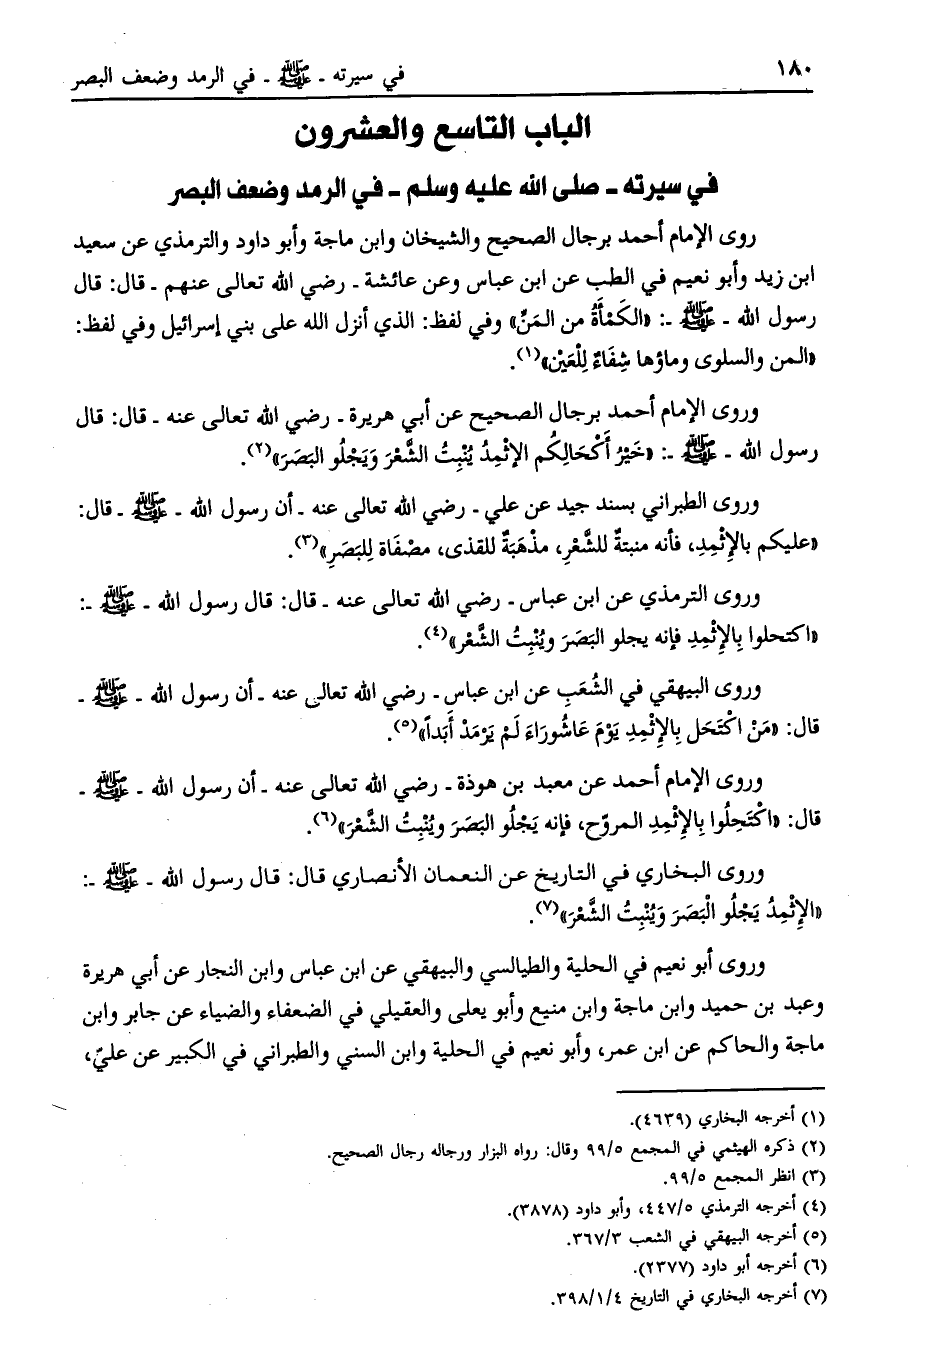 ١٨٠
في سيرته ـ ﷺ ـ في الرمد وضعف البصر
الباب التاسع والعشرون
في سيرته ـ صلى الله عليه وسلم ـ في الرمد وضعف البصر
روى الإمام أحمد برجال الصحيح والشيخان وابن ماجة وأبو داود والترمذي عن سعيد
ابن زيد وأبو نعيم في الطب عن ابن عباس وعن عائشة ـ رضي الله تعالى عنهم ـ قال: قال
رسول الله ـ ﷺ ـ: «الكَمْأَةُ من المَنِّ» وفي لفظ: الذي أنزل الله على بني إسرائيل وفي لفظ:
«المن والسلوى وماؤها شِفَاءٌ لِلْعَيْن»(١).
وروى الإمام أحمد برجال الصحيح عن أبي هريرة ـ رضي الله تعالى عنه ـ قال: قال
رسول الله ـ ﷺ ـ: «خَيْرُ أَكْحَالِكُم الإثْمِدُ يُنْبِتُ الشَّعْرَ وَيَجْلُو البَصَرَ»(٢).
وروى الطبراني بسند جيد عن علي ـ رضي الله تعالى عنه ـ أن رسول الله ـ ﷺ ـ قال:
«عليكم بالإثْمِدِ، فأنه منبتةٌ للشَّعْرِ، مذْهَبَةٌ للقذى، مصْفَاة لِلبَصَرِ»(٣).
وروى الترمذي عن ابن عباس ـ رضي الله تعالى عنه ـ قال: قال رسول الله ـ ﷺ ـ:
«اكتحلوا بِالإِثْمِدِ فإنه يجلو البَصَرَ ويُنْبِتُ الشَّعْر»(٤).
وروى البيهقي في الشُعَبِ عن ابن عباس ـ رضي الله تعالى عنه ـ أن رسول الله ـ ﷺ ـ
قال: «مَنْ اكْتَحَل بِالإِثْمِدِ يَوْمَ عَاشُورَاءَ لَمْ يَرْمَدْ أَبَداً»(٥).
وروى الإمام أحمد عن معبد بن هوذة ـ رضي الله تعالى عنه ـ أن رسول الله ـ ﷺ ـ
قال: «اكْتَحِلُوا بِالإِثْمِدِ المروّح، فإنه يَجْلُو البَصَرَ ويُنْبِتُ الشَّعْرَ»(٦).
وروى البخاري في التاريخ عن النعمان الأنصاري قال: قال رسول الله ـ ﷺ ـ:
«الإِثْمِدُ يَجْلُو الْبَصَرَ وَيُنْبِتُ الشَّعْرَ»(٧).
وروى أبو نعيم في الحلية والطيالسي والبيهقي عن ابن عباس وابن النجار عن أبي هريرة
وعبد بن حميد وابن ماجة وابن منيع وأبو يعلى والعقيلي في الضعفاء والضياء عن جابر وابن
ماجة والحاكم عن ابن عمر، وأبو نعيم في الحلية وابن السني والطبراني في الكبير عن عليّ،
(١) أخرجه البخاري (٤٦٣٩).
(٢) ذكره الهيثمي في المجمع ٩٩/٥ وقال: رواه البزار ورجاله رجال الصحيح.
(٣) انظر المجمع ٩٩/٥.
(٤) أخرجه الترمذي ٤٤٧/٥، وأبو داود (٣٨٧٨).
(٥) أخرجه البيهقي في الشعب ٣٦٧/٣.
(٦) أخرجه أبو داود (٢٣٧٧).
(٧) أخرجه البخاري في التاريخ ٣٩٨/١/٤.